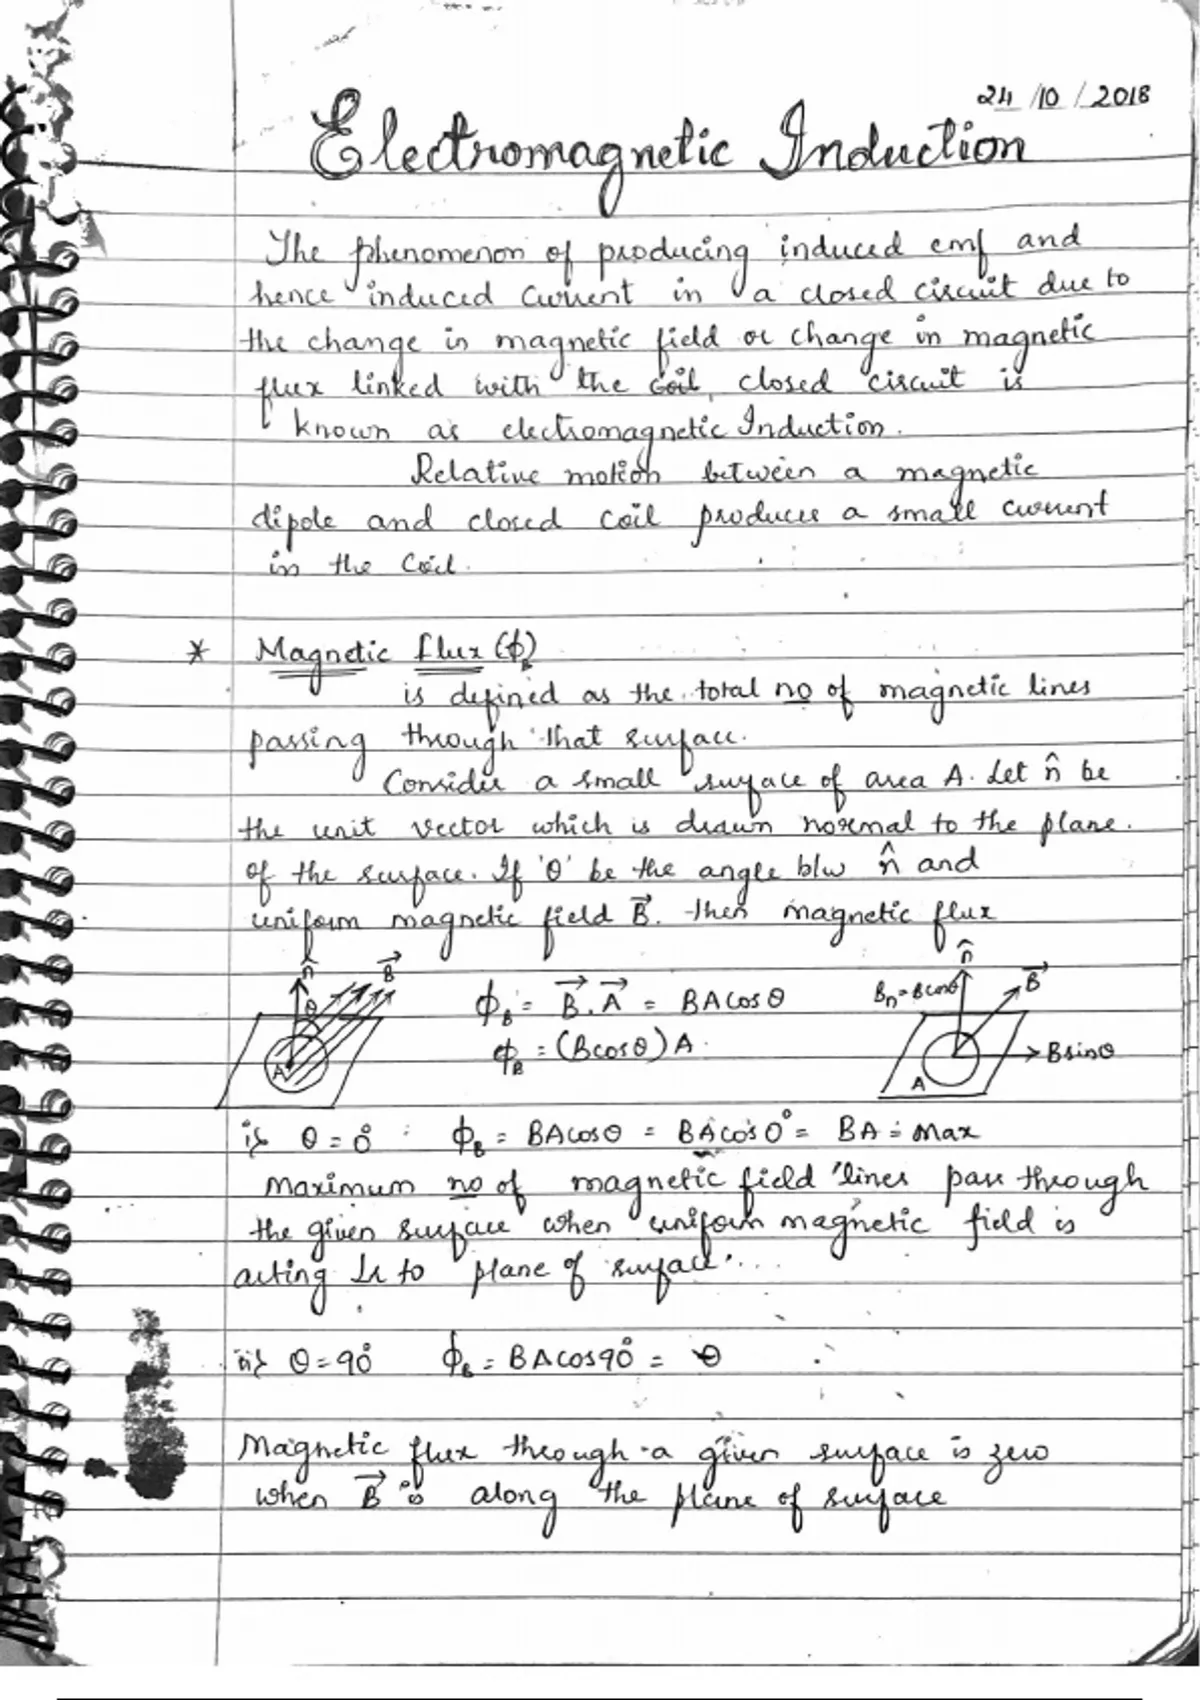 24/10/2018
Electromagnetic Induction
The phenomenon of producing induced emf and
hence induced current in a closed circuit due to
the change in magnetic field or change in magnetic
flux linked with the coil, closed circuit is
known as electromagnetic Induction.
Relative motion between a magnetic
dipole and closed coil produces a small current
in the coil.
* Magnetic flux (ϕB)
is defined as the total no of magnetic lines
passing through that surface.
Consider a small surface of area A. Let n̂ be
the unit vector which is drawn normal to the plane.
of the surface. If 'θ' be the angle b/w n̂ and
uniform magnetic field B⃗. then magnetic flux
n̂ B⃗ θ A
ϕB = B⃗.A⃗ = BAcosθ
ϕB = (Bcosθ)A
n̂ Bn=Bcosθ B⃗ Bsinθ A
i) θ = 0° ϕB = BAcosθ = BAcos0° = BA = Max
Maximum no of magnetic field lines pass through
the given surface when uniform magnetic field is
acting ⊥r to plane of surface.
ii) θ = 90° ϕB = BAcos90° = 0
Magnetic flux through a given surface is zero
when B⃗ is along the plane of surface